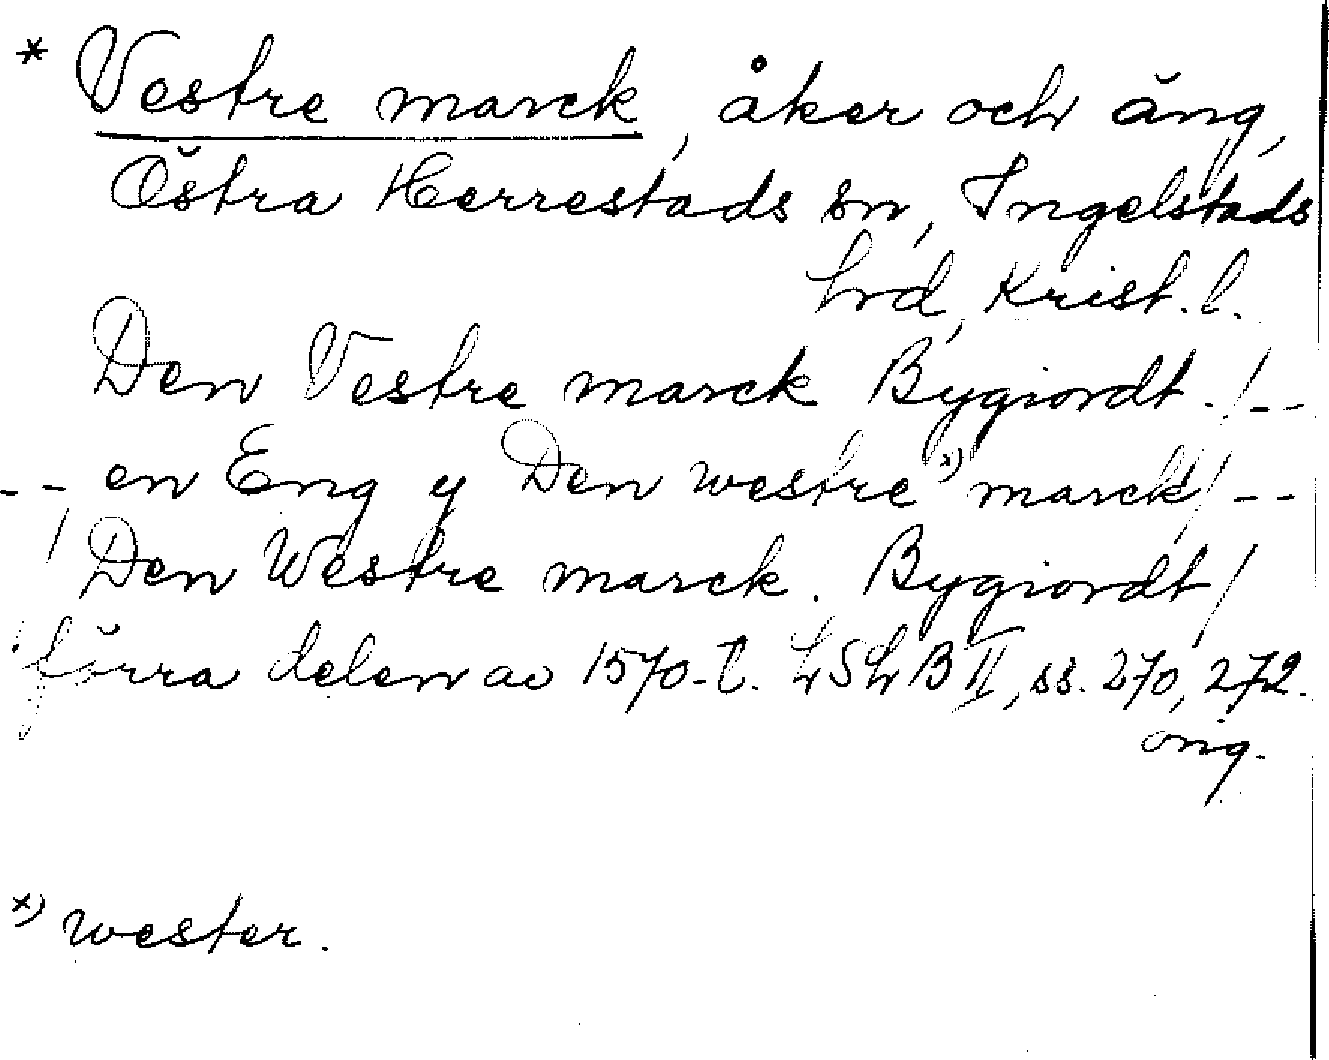 * Vestre marck, åker och äng,
Östra Herrestads sn, Ingelstads
hrd, Krist. l.
Den Vestre marck Bygiordt. /--
-- en Eng y Den westre x) marck / --
/ Den Westre marck. Bygiordt /
förra delen av 1570-t. LSLB II, ss. 270, 272.
orig.
x) wester.